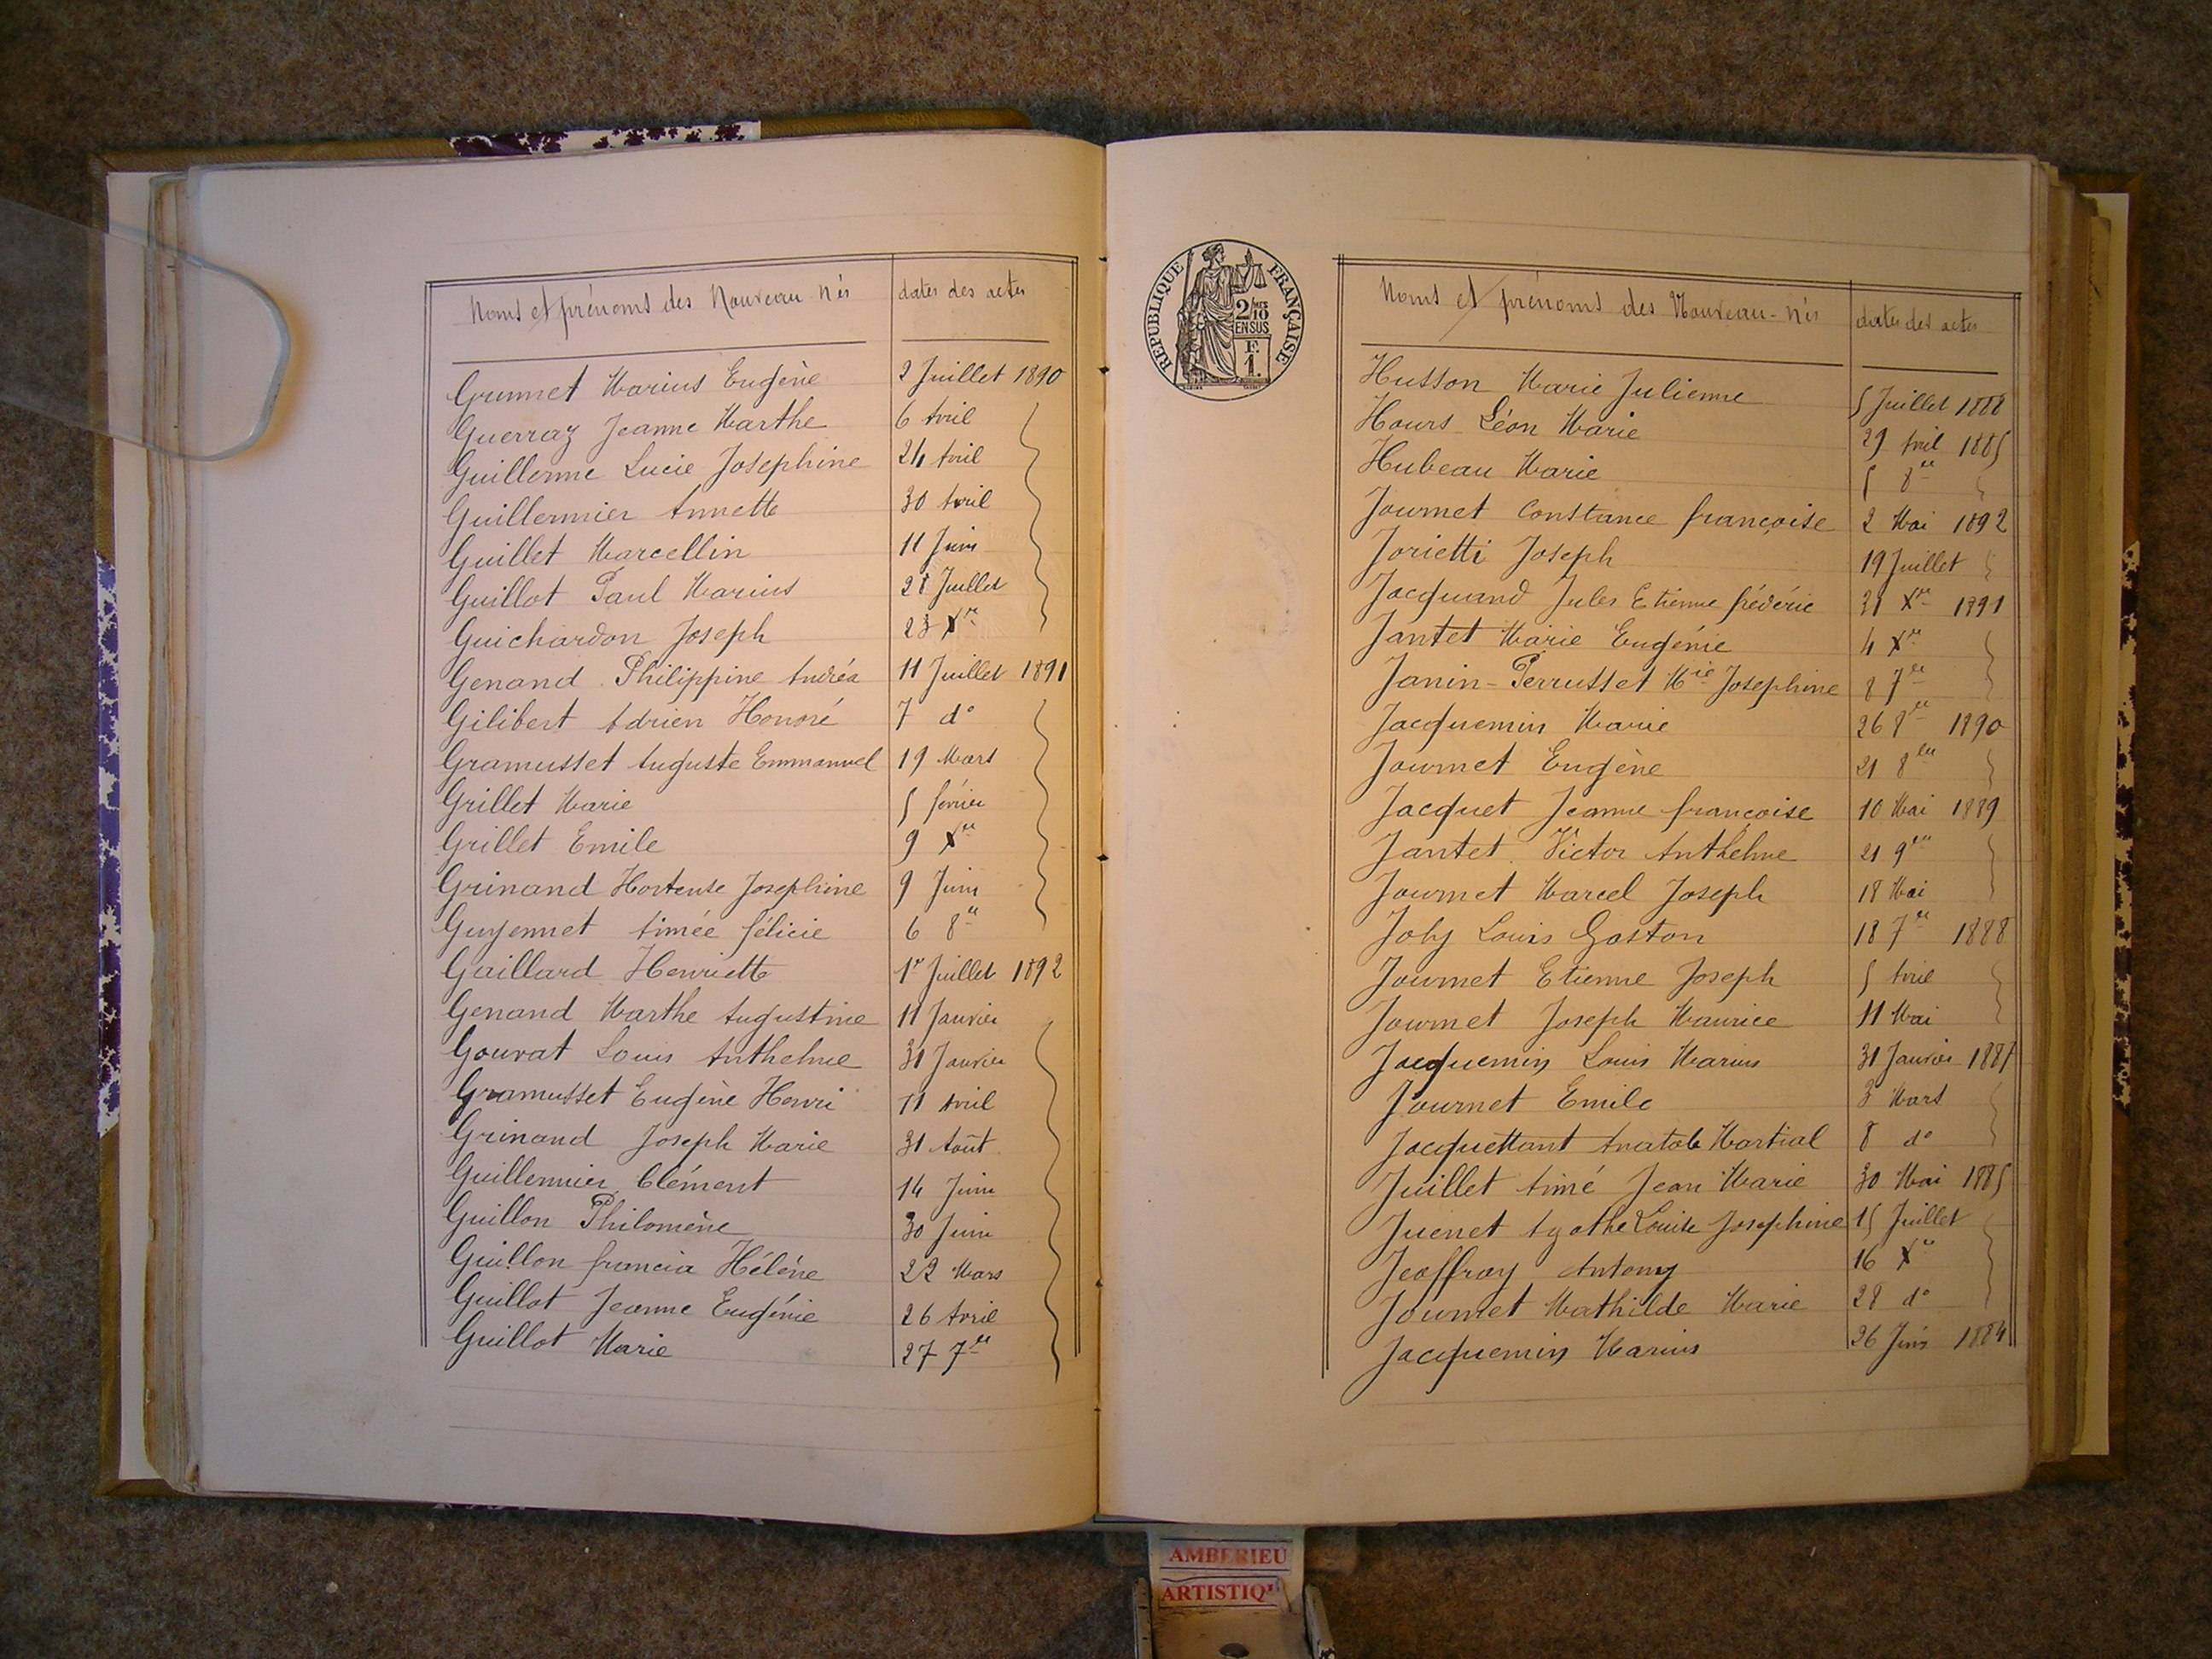 Noms et prénoms des Nouveau-nés dates des actes
Grumet Marius Eugène 2 Juillet 1890
Guerraz Jeanne Marthe 6 Avril
Guillerme Lucie Josephine 24 Avril
Guillermier Annette 30 Avril
Guillet Marcellin 11 Juin
Guillot Paul Marius 28 Juillet
Guichardon Joseph 23 Xre
Genand Philippine Andréa 11 Juillet 1891
Gilibert Adrien Honoré 7 do
Gramusset Auguste Emmanuel 19 Mars
Grillet Marie 5 février
Grillet Emile 9 Xre
Grinand Hortense Josephine 9 Juin
Guyennet Aimée félicie 6 8re
Gaillard Henriette 1er Juillet 1892
Genand Marthe Augustine 11 Janvier
Gouvat Louis Anthelme 31 Janvier
Gramusset Eugène Henri 11 Avril
Grinand Joseph Marie 31 Août
Guillermier Clément 14 Juin
Guillon Philomène 30 Juin
Guillon francia Hélène 22 Mars
Guillot Jeanne Eugénie 26 Avril
Guillot Marie 27 7re
REPUBLIQUE FRANÇAISE
2/10 EN SUS
F. 1.
Noms et prénoms des Nouveau-nés dates des actes
Husson Marie Julienne 5 Juillet 1888
Hours Léon Marie 29 Avril 1885
Hubeau Marie 5 8re
Journet Constance françoise 2 Mai 1892
Jorietti Joseph 19 Juillet
Jacquand Jules Etienne frédéric 31 Xre 1891
Jantet Marie Eugénie 4 Xre
Janin-Perrusset Mie Josephine 8 7re
Jacquemin Marie 26 8re 1890
Journet Eugène 21 8bre
Jacquet Jeanne françoise 10 Mai 1889
Jantet Victor Anthelme 21 9bre
Journet Marcel Joseph 18 Mai
Joly Louis Gaston 18 7re 1888
Journet Etienne Joseph 5 Avril
Journet Joseph Maurice 11 Mai
Jacquemin Louis Marius 31 Janvier 1887
Journet Emile 3 Mars
Jacquettant Anatole Martial 8 do
Juillet Aimé Jean Marie 30 Mai 1885
Juenet Agathe Louise Josephine 15 Juillet
Jeoffray Antony 16 Xre
Journet Mathilde Marie 28 do
Jacquemin Marius 26 Juin 1884
AMBERIEU
ARTISTIQU